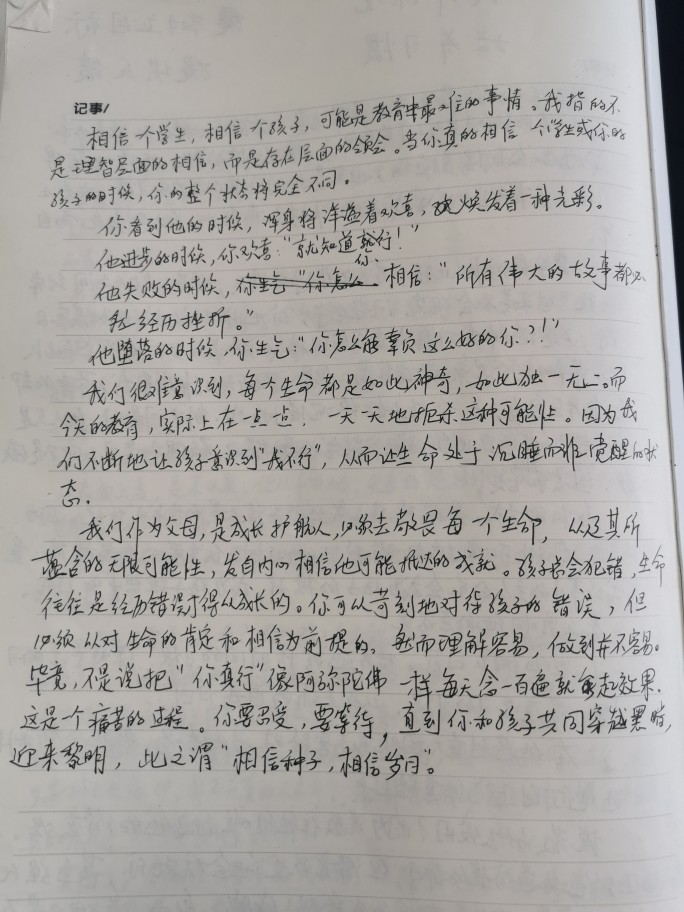 记事/
相信一个学生，相信一个孩子，可能是教育中最对位的事情。我指的不
是理智层面的相信，而是存在层面的领会。当你真的相信一个学生或你的
孩子的时候，你的整个状态将完全不同。
你看到他的时候，浑身将洋溢着欢喜，焕发着一种光彩。
他进步的时候，你欢喜："就知道你行！"
他失败的时候，你相信："所有伟大的故事都必
须经历挫折。"
他堕落的时候，你生气："你怎么能辜负这么好的你？！"
我们很难意识到，每个生命都是如此神奇，如此独一无二。而
今天的教育，实际上在一点一点，一天一天地扼杀这种可能性。因为我
们不断地让孩子意识到"我不行"，从而让生命处于沉睡而非觉醒的状
态。
我们作为父母，是成长护航人，必须去敬畏每一个生命，以及其所
蕴含的无限可能性，发自内心相信他可能抵达的成就。孩子总会犯错，生命
往往是经历错误才得以成长的。你可以苛刻地对待孩子的错误，但
必须以对生命的肯定和相信为前提的。然而理解容易，做到并不容易。
毕竟，不是说把"你真行"像阿弥陀佛一样每天念一百遍就能起效果.
这是个痛苦的过程。你要忍受，要等待，直到你和孩子共同穿越黑暗，
迎来黎明，此之谓"相信种子，相信岁月"。